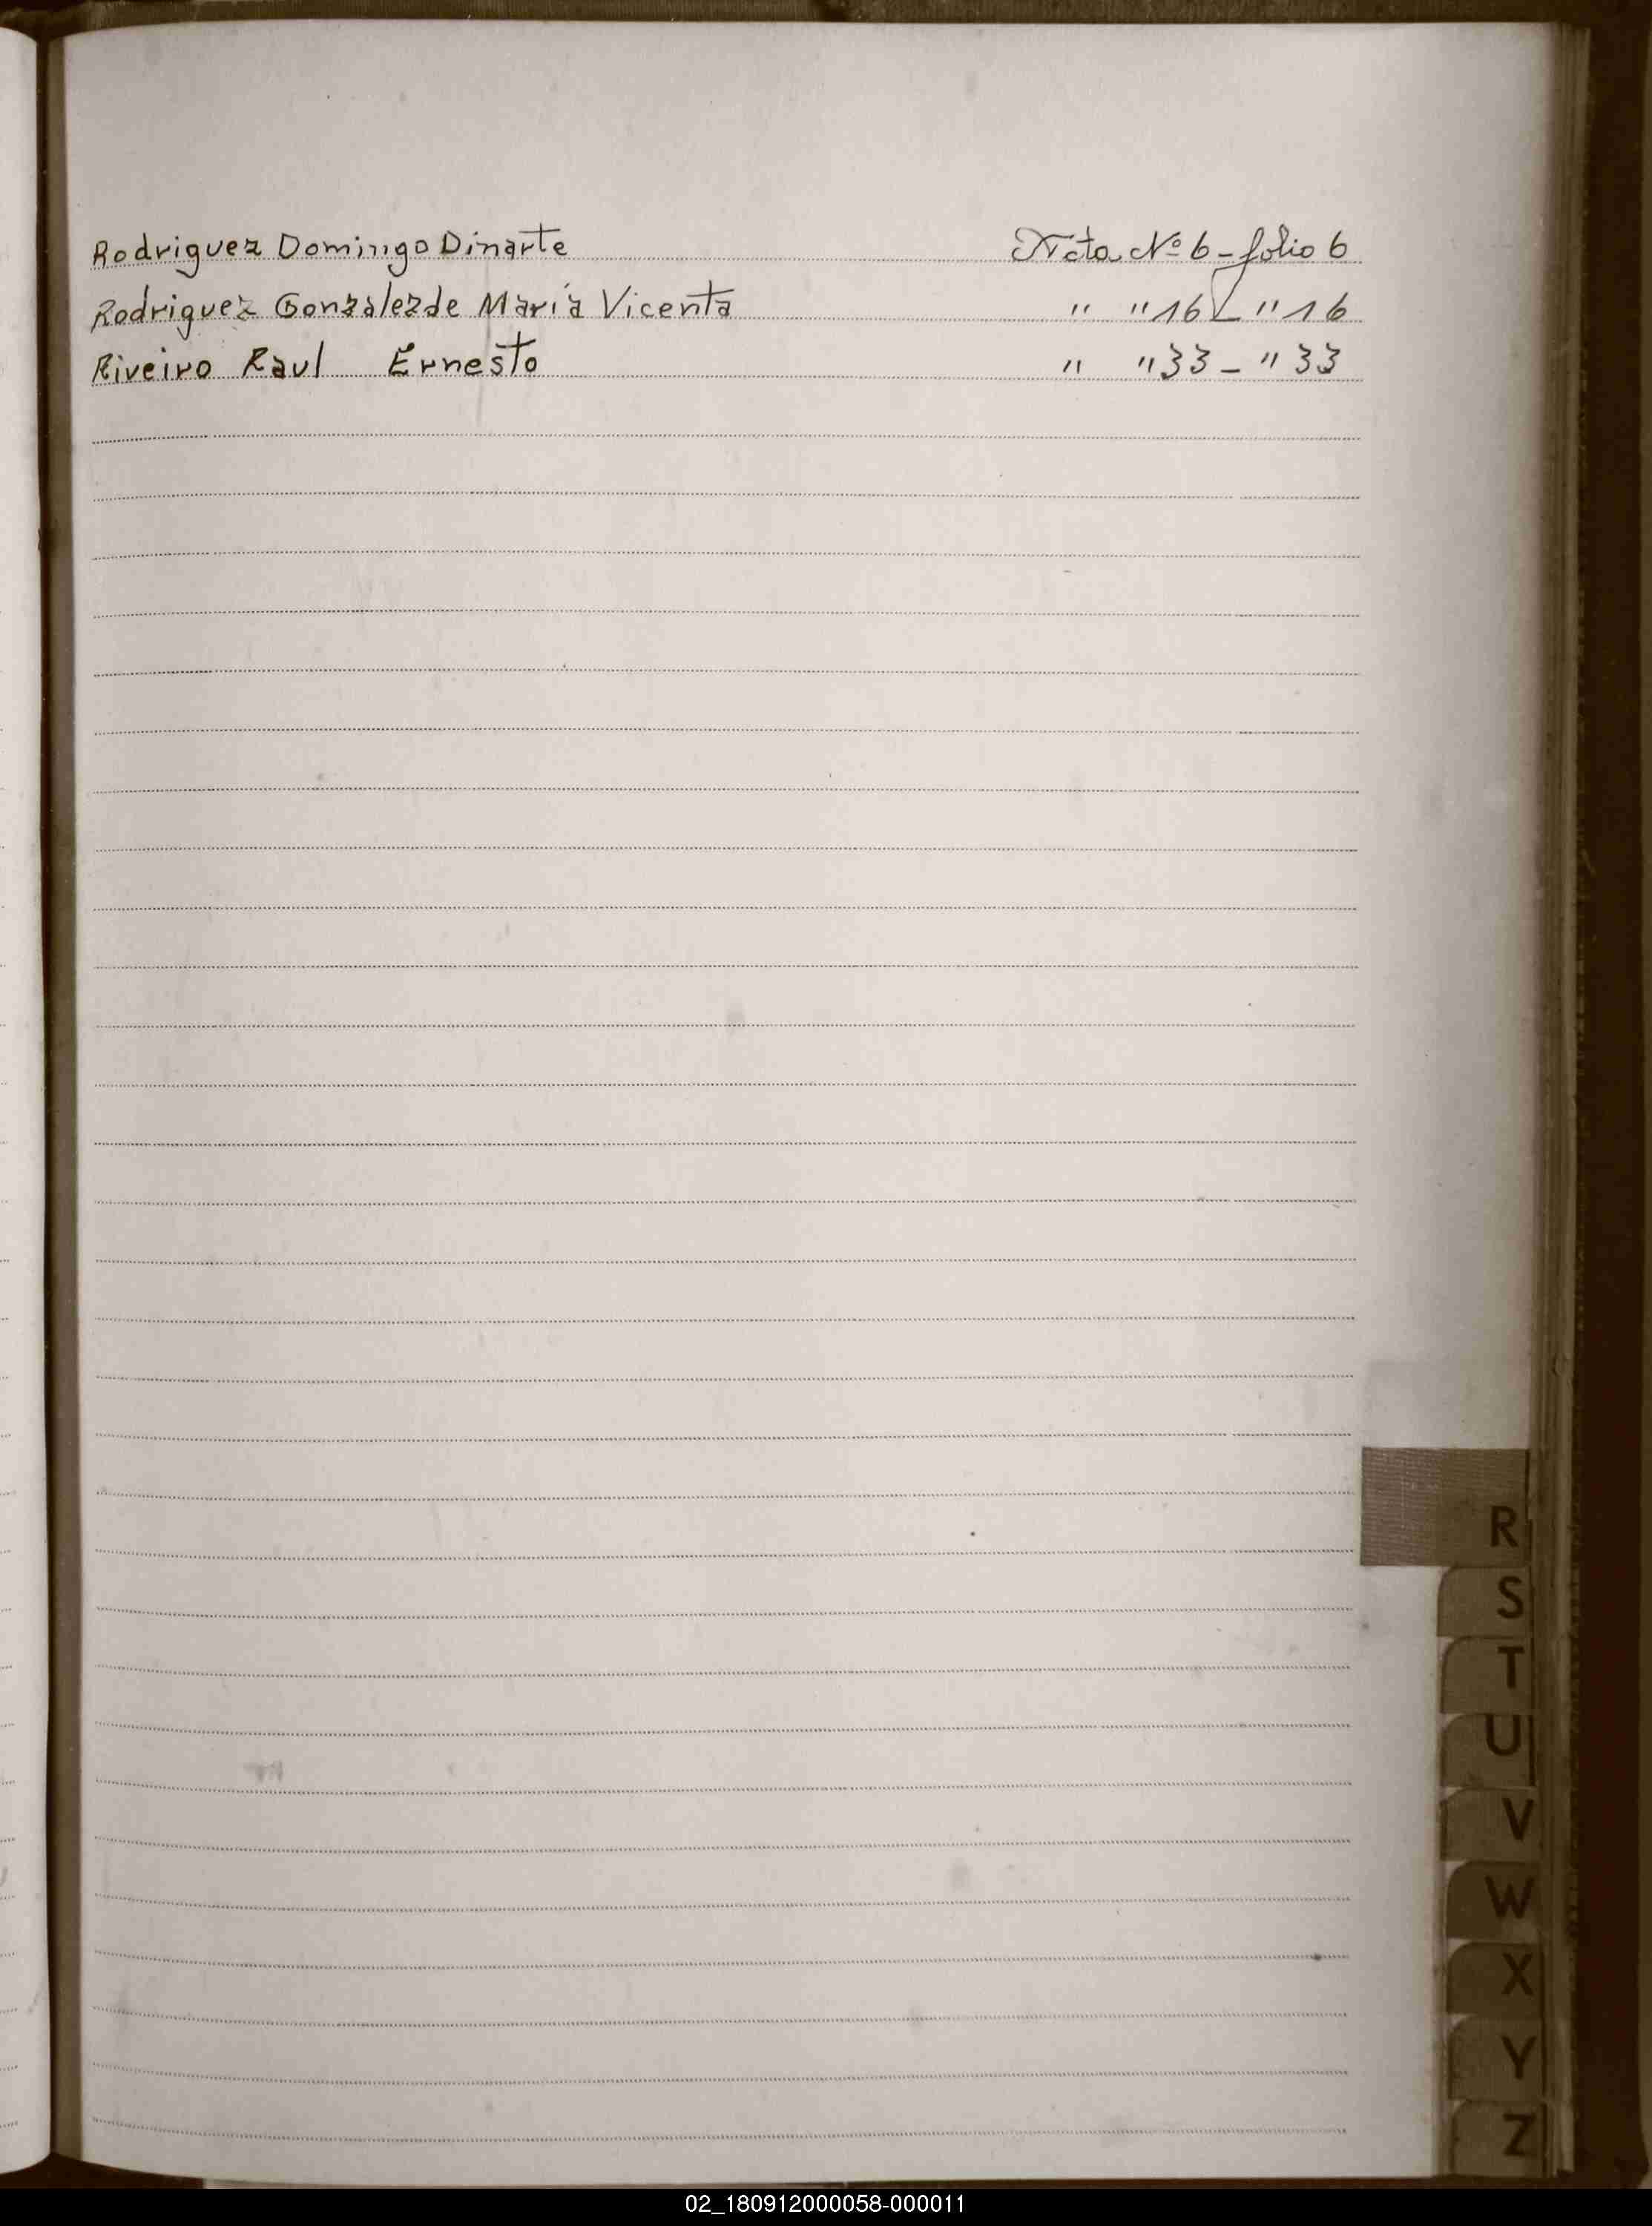 Rodriguez Domingo Dinarte Acta Nº 6 - folio 6
Rodriguez Gonzalez de María Vicenta " " 16 - " 16
Riveiro Raul Ernesto " " 33 - " 33
R
S
T
U
V
W
X
Y
Z
02_180912000058-000011